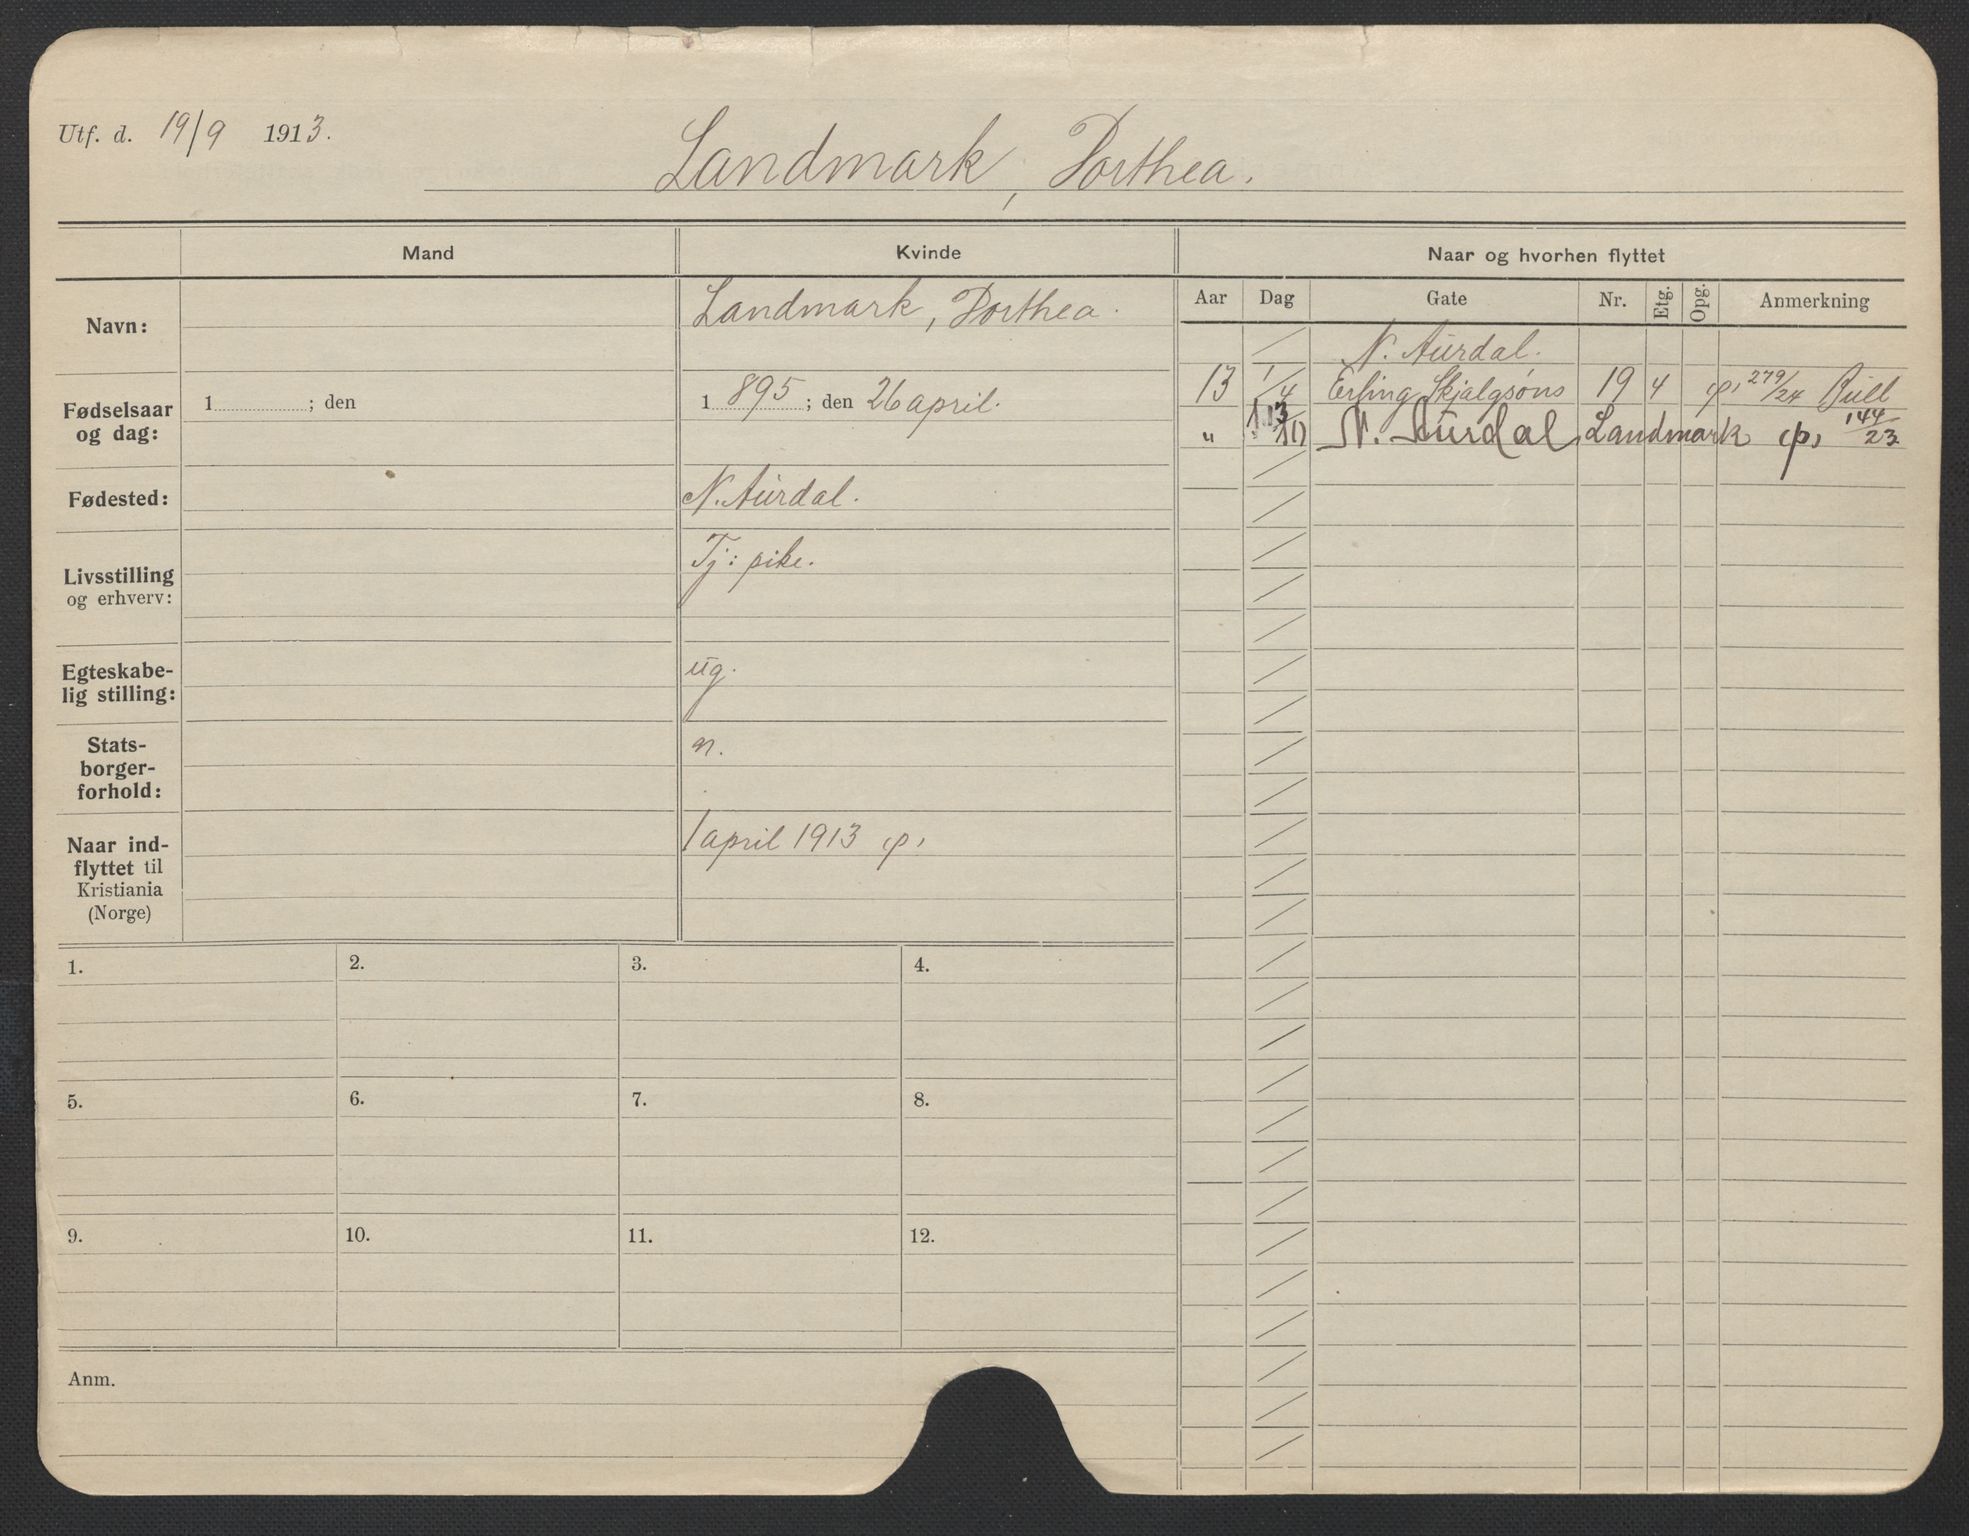 Utf. d. 19/9 1913.
Landmark, Dorthea.
Mand
Kvinde
Naar og hvorhen flyttet
Navn:
Landmark, Dorthea.
Fødselsaar og dag:
1 ; den
1 895 ; den 26 april.
Fødested:
N. Aurdal.
Livsstilling og erhverv:
Tj: pike.
Egteskabe-
lig stilling:
ug.
Stats-
borger-
forhold:
n.
Naar ind-
flyttet til
Kristiania
(Norge)
1 april 1913 p,
Aar Dag Gate Nr. Etg. Opg. Anmerkning
N. Aurdal.
13 1/4 Erling Skjalgsøns 19 4 p, 279/24 Bull
" /10 N. Aurdal, Landmark p, 144/23
1. 2. 3. 4.
5. 6. 7. 8.
9. 10. 11. 12.
Anm.